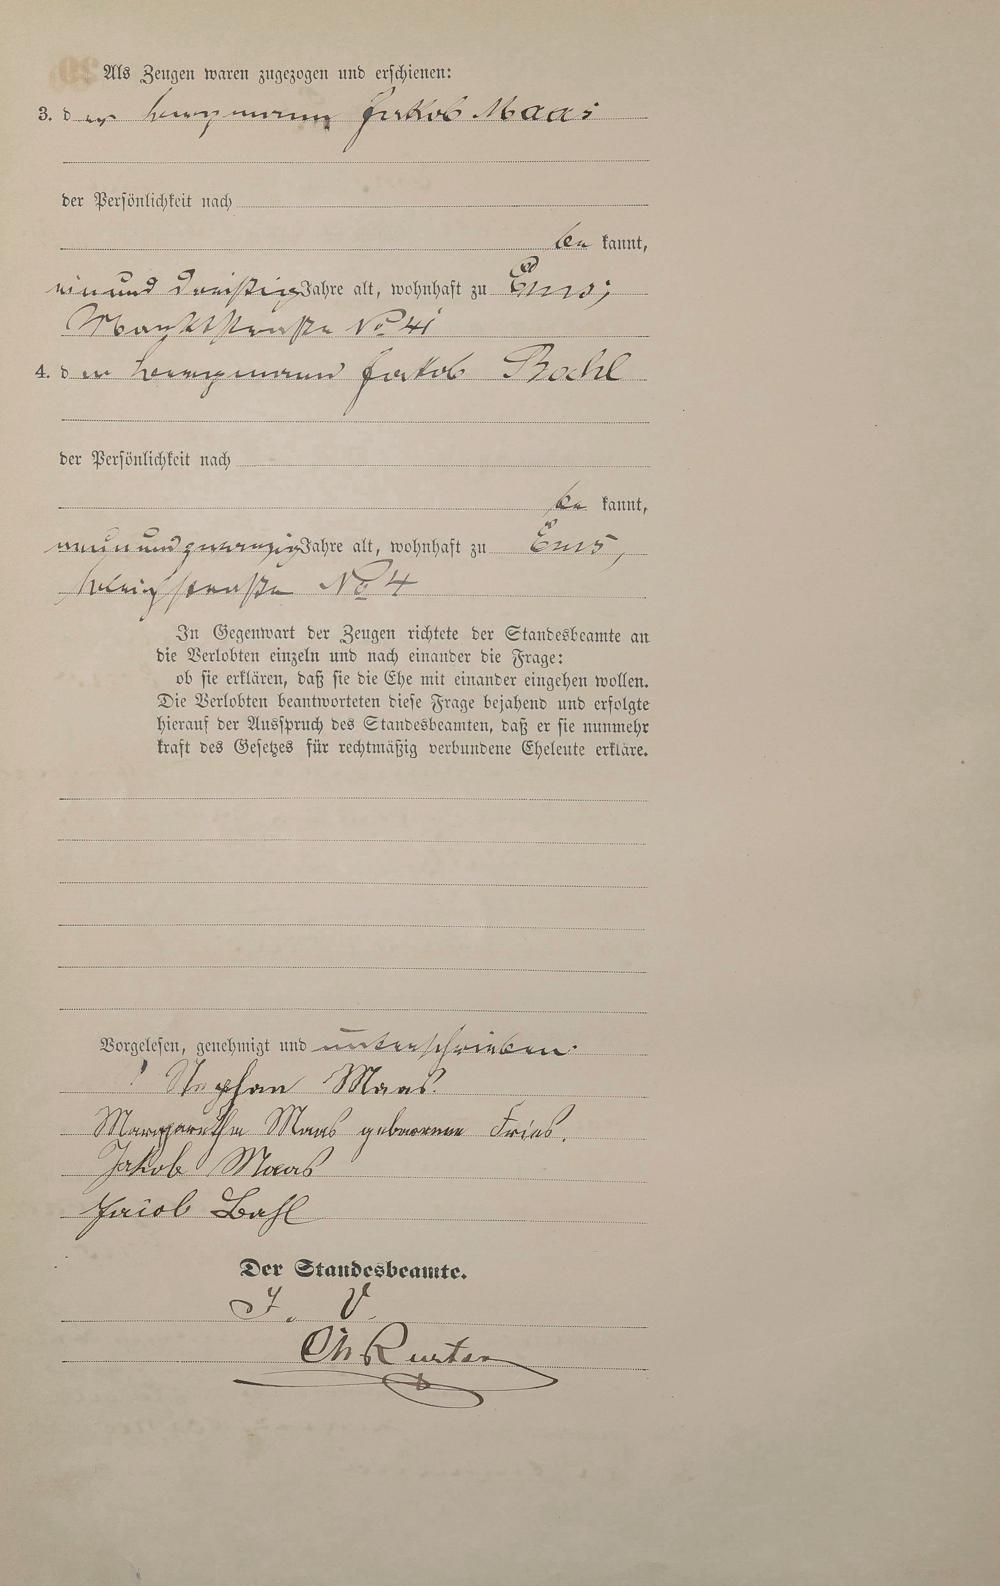 Als Zeugen waren zugezogen und erschienen:
3. der Bergmann Jakob Maas
der Persönlichkeit nach
be kannt,
einund dreißig Jahre alt, wohnhaft zu Ems,
Marktstraße No 41
4. der Bergmann Jakob Bahl
der Persönlichkeit nach
be kannt,
neunundzwanzig Jahre alt, wohnhaft zu Ems,
straße No 4
In Gegenwart der Zeugen richtete der Standesbeamte an
die Verlobten einzeln und nach einander die Frage:
ob sie erklären, daß sie die Ehe mit einander eingehen wollen.
Die Verlobten beantworteten diese Frage bejahend und erfolgte
hierauf der Ausspruch des Standesbeamten, daß er sie nunmehr
kraft des Gesetzes für rechtmäßig verbundene Eheleute erkläre.
Vorgelesen, genehmigt und unterschrieben:
Stephan Maas.
Margaretha Maas geborene Fries.
Jakob Maas
Jacob Bahl
Der Standesbeamte.
J. V.
Ch